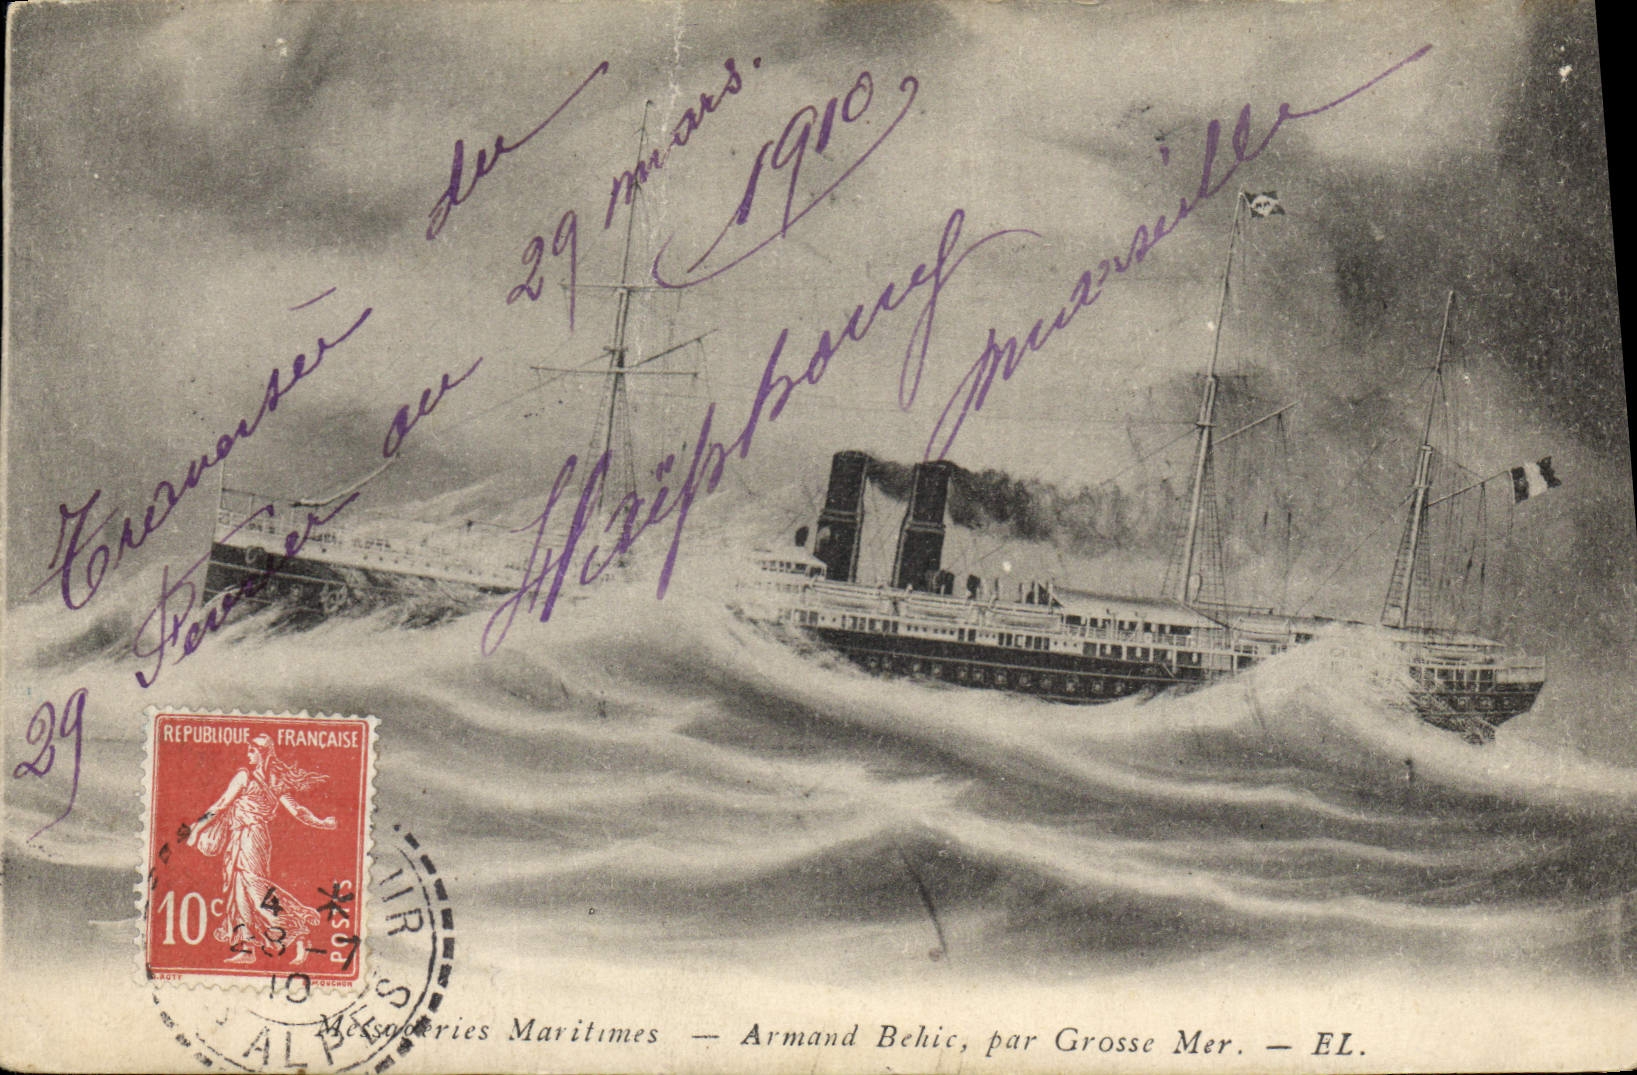 Traversée du
29 Fevrier au 29 mars.
1910
Haïphong Marseille
REPUBLIQUE FRANÇAISE
10c
POSTES
4 *
28-7
10
ALPES
Messageries Maritimes — Armand Behic, par Grosse Mer. — EL.